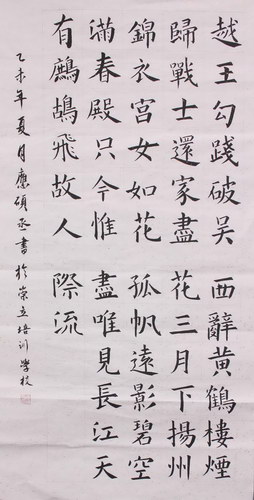 越王勾踐破吳
歸戰士還家盡
錦衣宮女如花
滿春殿只今惟
有鷓鴣飛故人
西辭黃鶴樓煙
花三月下揚州
孤帆遠影碧空
盡唯見長江天
際流
乙未年夏月應碩丞書於崇立培训學校